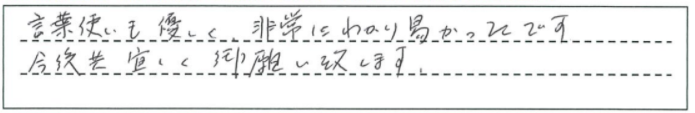 言葉使いも優しく、非常にわかり易かったです
今後共宜しく御願い致します。